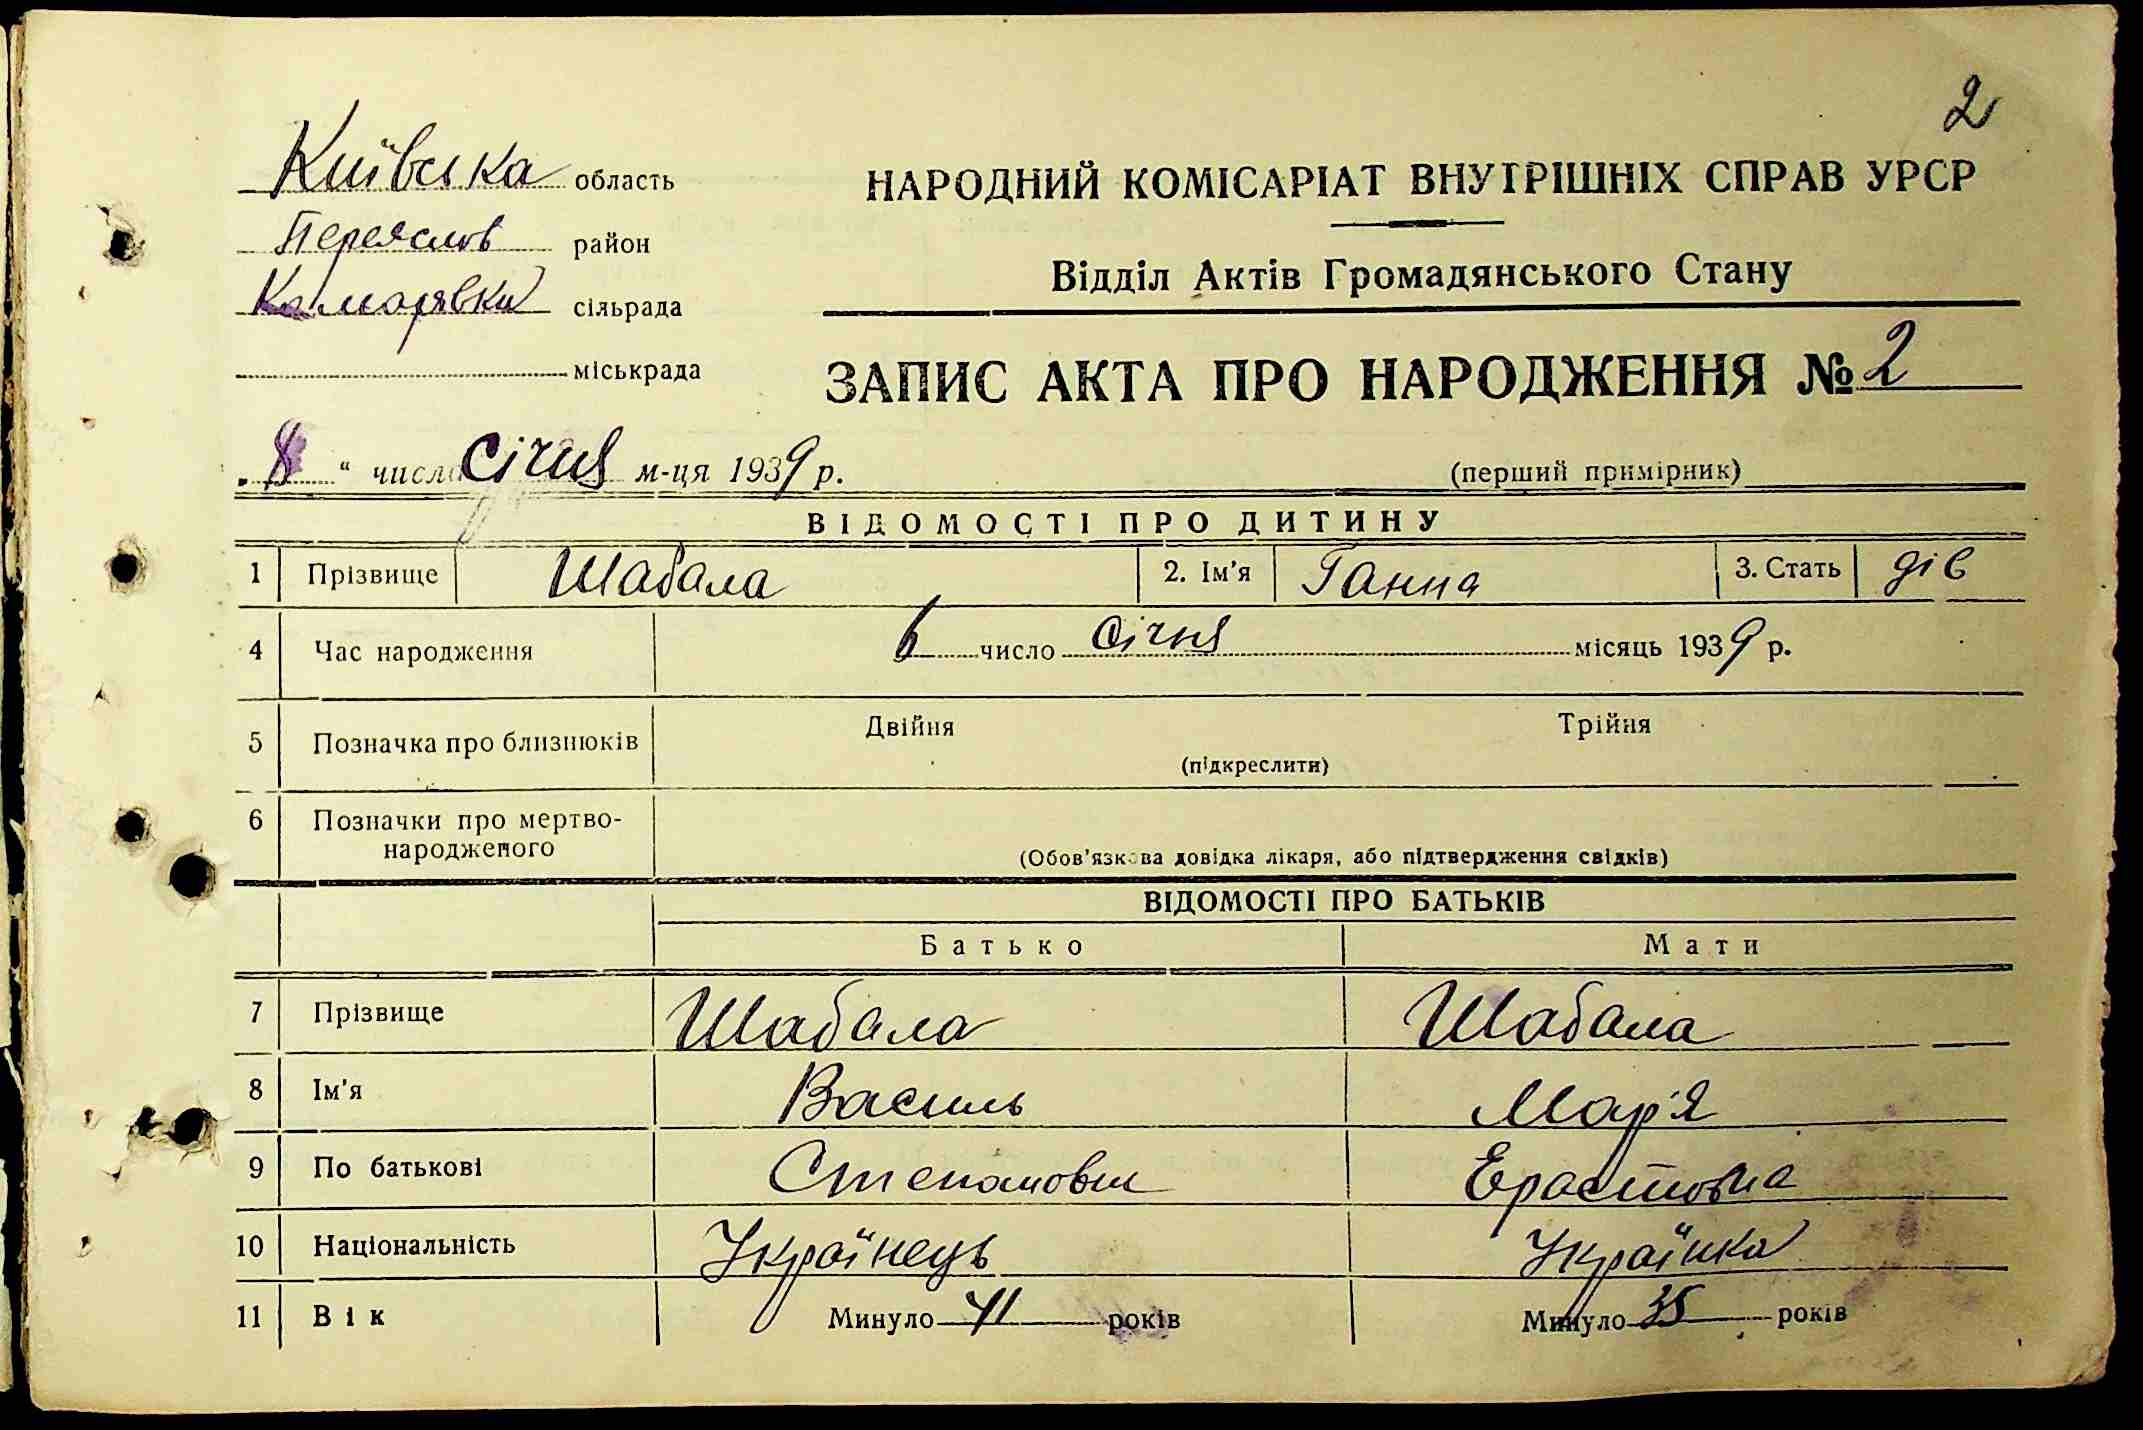 2
Київська область
НАРОДНИЙ КОМІСАРІАТ ВНУТРІШНІХ СПРАВ УРСР
Переяслов район
Відділ Актів Громадянського Стану
Комарівка сільрада
міськрада
ЗАПИС АКТА ПРО НАРОДЖЕННЯ № 2
„8“ числа січня м-ця 1939 р.
(перший примірник)
ВІДОМОСТІ ПРО ДИТИНУ
1 Прізвище Шабала 2. Ім'я Ганна 3. Стать дів
4 Час народження 6 число січня місяць 1939 р.
5 Позначка про близнюків Двійня Трійня
(підкреслити)
6 Позначки про мертво-
народженого
(Обов'язкова довідка лікаря, або підтвердження свідків)
ВІДОМОСТІ ПРО БАТЬКІВ
Батько Мати
7 Прізвище Шабала Шабала
8 Ім'я Василь Мар'я
9 По батькові Степанович Ерастовна
10 Національність Українець Українка
11 Вік Минуло 41 років Минуло 35 років